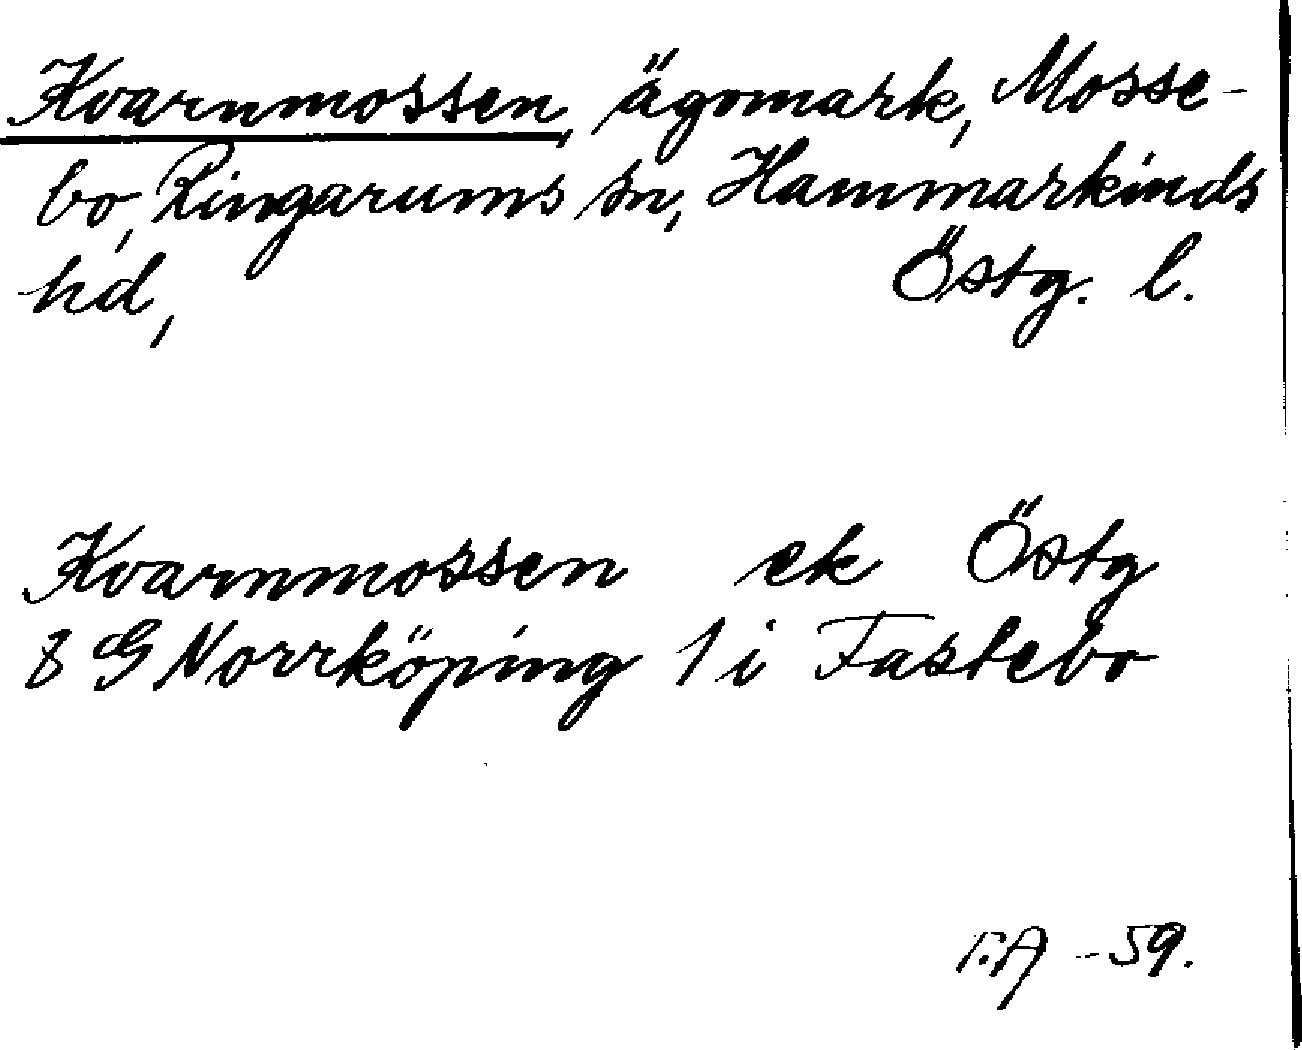 Kvarnmossen, ägomark, Mosse-
bo, Ringarums sn, Hammarkinds
hd, Östg. l.
Kvarnmossen ek Östg
8 G Norrköping 1 i Fastebo
F.A -59.